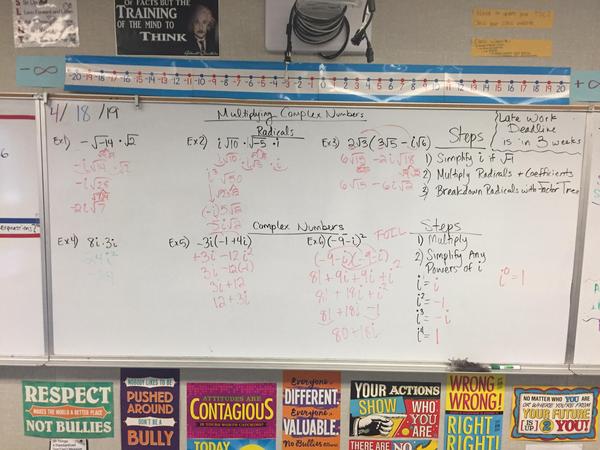 OF FACTS BUT THE
TRAINING
OF THE MIND TO
THINK
-∞
-20 -19 -18 -17 -16 -15 -14 -13 -12 -11 -10 -9 -8 -7 -6 -5 -4 -3 -2 -1 0 1 2 3 4 5 6 7 8 9 10 11 12 13 14 15 16 17 18 19 20
+∞
4/18/19
Multiplying Complex Numbers
Late Work
Deadline
is in 3 weeks
Radicals
Ex1) -√-14 · √2
-i√28
-2i√7
Ex2) i√10 · √-5 · i
i³√50
(-i)5√2
-5i√2
Ex3) 2√3(3√5 - i√6)
6√15 - 2i√18
6√15 - 6i√2
Steps
1) Simplify i if √-1
2) Multiply Radicals + Coefficients
3) Breakdown Radicals with Factor Tree
Complex Numbers
Ex4) 8i·3i
24i²
Ex5) -3i(-1+4i)
+3i -12i²
3i -12(-1)
3i+12
12+3i
Ex6) (-9-i)²
FOIL
(-9-i)(-9-i)
81+9i+9i+i²
81+18i+i²
81+18i-1
80+18i
Steps
1) Multiply
2) Simplify Any
Powers of i
i¹=i
i²=-1
i³=-i
i⁴=1
i⁰=1
RESPECT
MAKES THE WORLD A BETTER PLACE
NOT BULLIES
NOBODY LIKES TO BE
PUSHED
AROUND
DON'T BE A
BULLY
ATTITUDES ARE
CONTAGIOUS
IS YOURS WORTH CATCHING?
TODAY
Everyone is
DIFFERENT.
Everyone is
VALUABLE.
No Bullies
YOUR ACTIONS
SHOW
WHO
YOU
ARE
THERE ARE NO
WRONG'S
WRONG!
RIGHT'S
RIGHT!
NO MATTER WHO YOU ARE
OR WHERE YOU'RE FROM
YOUR FUTURE
IS UP 2 YOU!